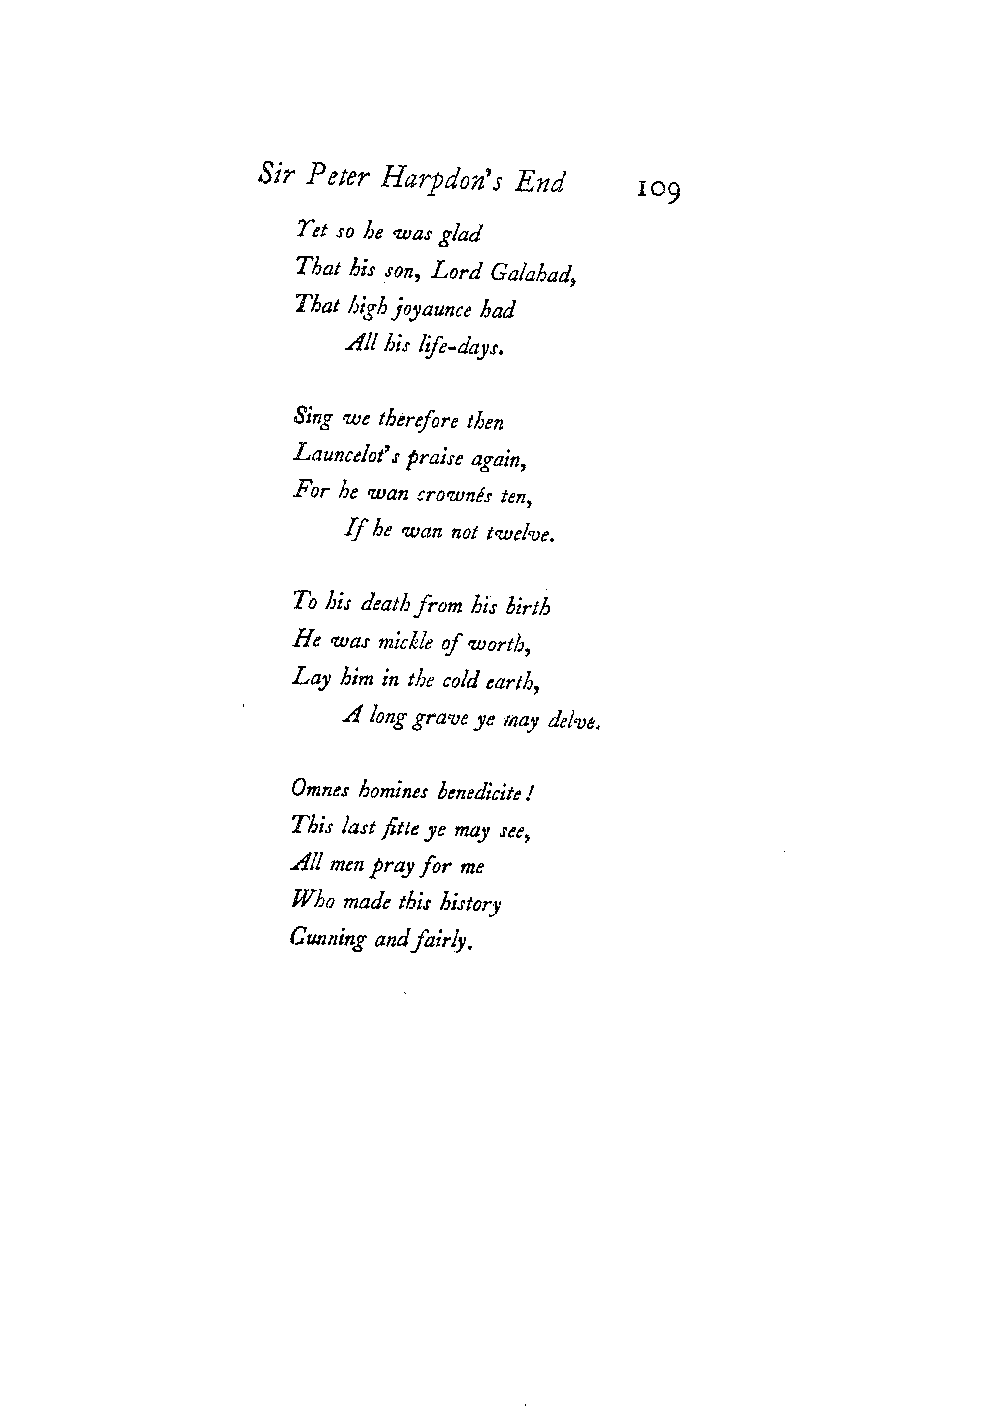 Sir Peter Harpdon's End 109
Yet so he was glad
That his son, Lord Galahad,
That high joyaunce had
All his life-days.
Sing we therefore then
Launcelot's praise again,
For he wan crownés ten,
If he wan not twelve.
To his death from his birth
He was mickle of worth,
Lay him in the cold earth,
A long grave ye may delve.
Omnes homines benedicite!
This last fitte ye may see,
All men pray for me
Who made this history
Cunning and fairly.